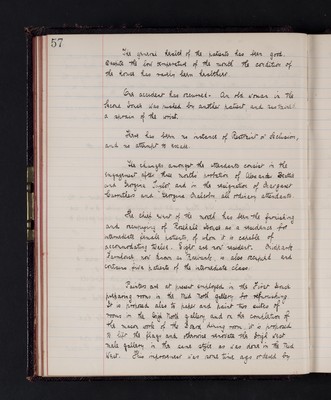 57
The general health of the patients has been good.
Despite the low temperature of the month the condition of
the house has rarely been healthier.
One accident has occurred. An old woman in the
Second House was pushed by another patient and sustained
a sprain of the wrist.
There has been no instance of Restraint or Seclusion,
and no attempt to escape.
The changes amongst the attendants consist in the
engagement after three months probation of
and Georgina and in the resignation of Margaret
and Georgina all ordinary attendants.
The chief event of the month has been the furnishing
and occupying of House as a residence for
intermediate female patients, of whom it is capable of
accommodating twelve. Eight are now resident.
now known as is also occupied and
contains five patients of the intermediate class.
Painters are at present employed in the First House
preparing rooms in the Gallery for refurnishing.
It is proposed also to paper and paint two suites of
rooms in the High North gallery and on the completion of
the mason work of the Board dining room, it is proposed
to lift the flags and otherwise renovate the High West
male gallery in the same style as was done in the
West. This improvement was some time ago ordered by